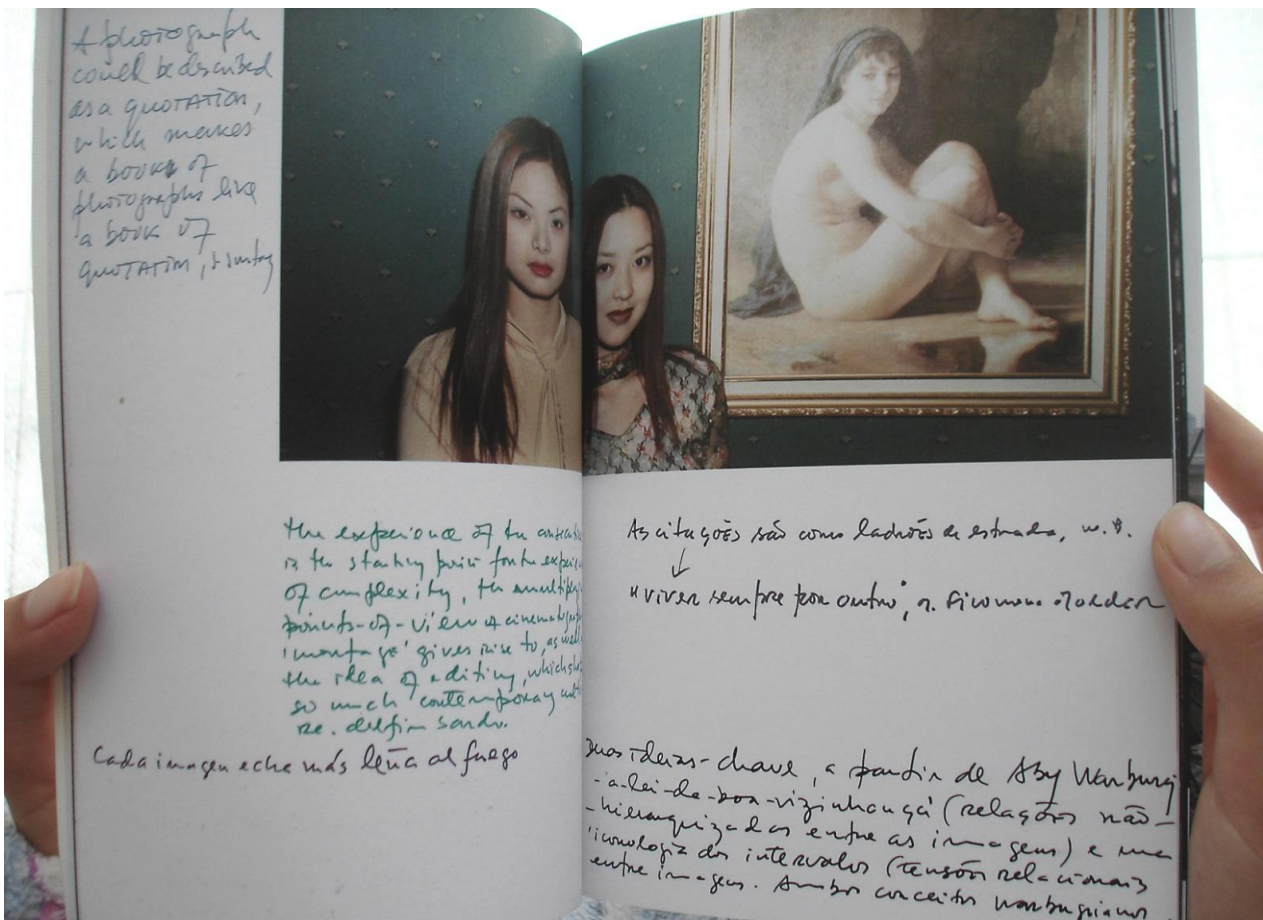 A photograph
could be described
as a quotation,
which makes
a book of
photographs like
a book of
quotation, s. sontag
the experience of the
is the starting point for the
of complexity, the
points-of-view a
'montage' gives rise to, as well
the idea of editing, which
so much contemporary
re. delfim sardo.
Cada imagen eche más leña al fuego
As citações são como ladrões de estrada, w. b.
"viver sempre por outro",
Duas ideias-chave, a partir de Aby Warburg
- 'a-lei-da-boa-vizinhança' (relações não-
-hierarquizadas entre as imagens) e uma
'iconologia dos intervalos (tensões relacionais
entre imagens. Ambos conceitos warburgianos